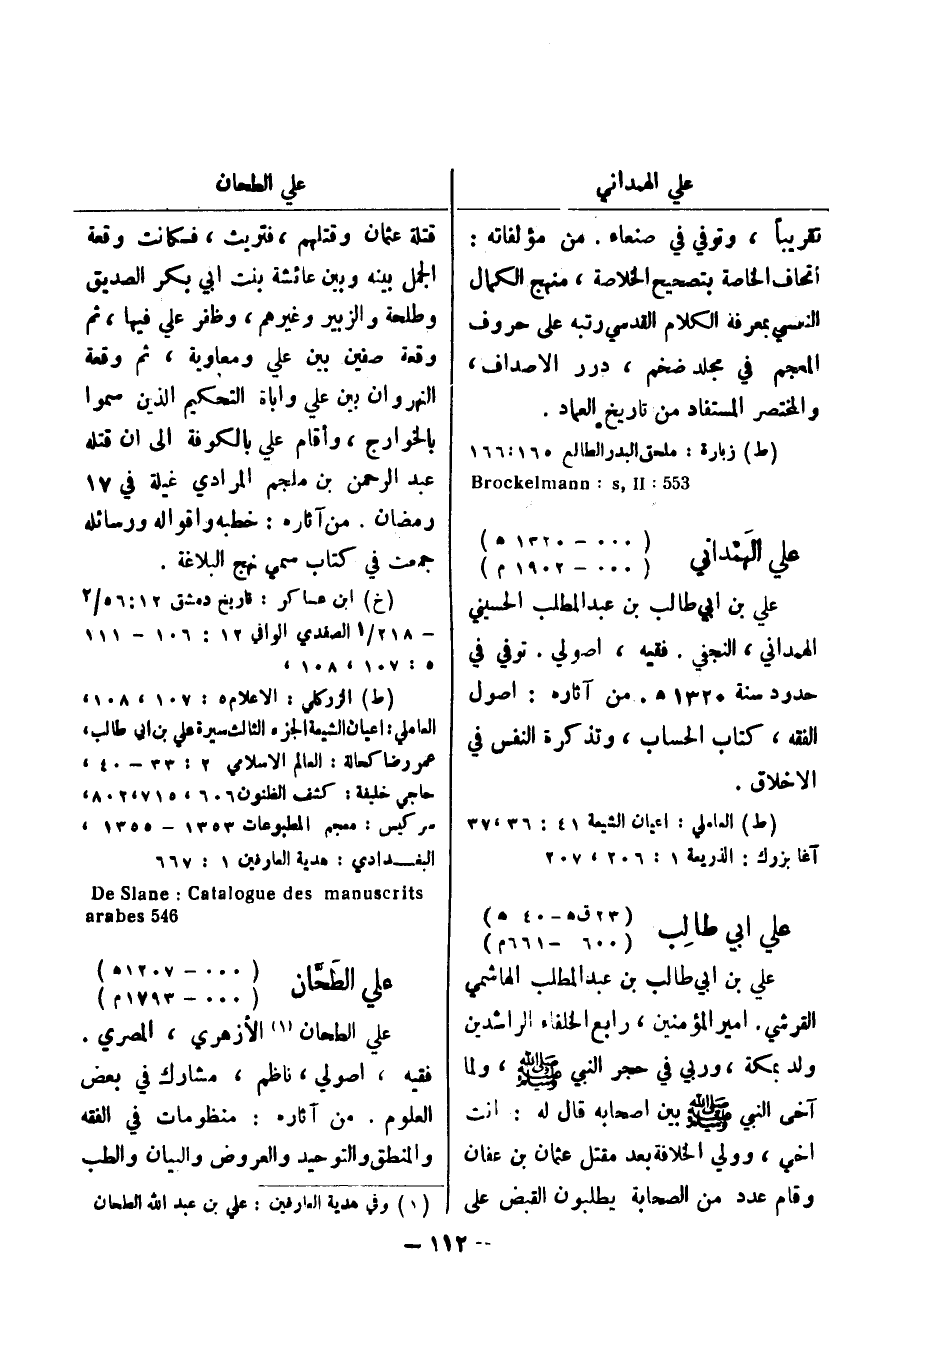 علي الهمداني
تقريباً ، وتوفي في صنعاء . من مؤلفاته :
اتحاف الخاصة بتصحيح الخلاصة ، منهج الكمال
النفسي بمعرفة الكلام القدسي رتبه على حروف
المعجم في مجلد ضخم ، درر الاصداف ،
والمختصر المستفاد من تاريخ العماد .
(ط) زبارة : ملحق البدر الطالع ١٦٥ : ١٦٦
Brockelmann : s, II : 553
علي الهَمْداني
( ٠٠٠ – ١٣٢٠ ه )
( ٠٠٠ – ١٩٠٢ م )
علي بن ابي طالب بن عبد المطلب الحسيني
الهمداني ، النجفي . فقيه ، اصولي . توفي في
حدود سنة ١٣٢٠ ه . من آثاره : اصول
الفقه ، كتاب الحساب ، وتذكرة النفس في
الاخلاق .
(ط) العاملي : اعيان الشيعة ٤١ : ٣٦ ، ٣٧
آغا بزرك : الذريعة ١ : ٢٠٦ ، ٢٠٧
علي ابي طالِب
( ٢٣ ق ه – ٤٠ ه )
( ٦٠٠ – ٦٦١ م )
علي بن ابي طالب بن عبد المطلب الهاشمي
القرشي . امير المؤمنين ، رابع الخلفاء الراشدين
ولد بمكة ، وربي في حجر النبي ﷺ ، ولما
آخى النبي ﷺ بين اصحابه قال له : انت
اخي ، وولي الخلافة بعد مقتل عثمان بن عفان
وقام عدد من الصحابة يطلبون القبض على
علي الطحان
قتلة عثمان وقتلهم ، فتريث ، فكانت وقعة
الجمل بينه وبين عائشة بنت ابي بكر الصديق
وطلحة والزبير وغيرهم ، وظافر علي فيها ، ثم
وقعة صفين بين علي ومعاوية ، ثم وقعة
النهروان بين علي واباة التحكيم الذين سموا
بالخوارج ، وأقام علي بالكوفة الى ان قتله
عبد الرحمن بن ملجم المرادي غيلة في ١٧
رمضان . من آثاره : خطبه واقواله ورسائله
جمعت في كتاب سمي نهج البلاغة .
(خ) ابن عساكر : تاريخ دمشق ١٢ : ٥٦/٢
– ٢١٨/١ الصفدي الوافي ١٢ : ١٠٦ – ١١١
٥ : ١٠٧ ، ١٠٨ ،
(ط) الزركلي : الاعلام ٥ : ١٠٧ ، ١٠٨ ،
العاملي : اعيان الشيعة الجزء الثالث سيرة علي بن ابي طالب ،
عمر رضا كحالة : العالم الاسلامي ٢ : ٣٣ – ٤٠ ،
حاجي خليفة : كشف الظنون ٦٠٦ ، ٧١٥ ، ٨٠٢ ،
سركيس : معجم المطبوعات ١٣٥٣ – ١٣٥٥ ،
البغدادي : هدية العارفين ١ : ٦٦٧
De Slane : Catalogue des manuscrits
arabes 546
علي الطَحَّان
( ٠٠٠ – ١٢٠٧ ه )
( ٠٠٠ – ١٧٩٣ م )
علي الطحان (١) الأزهري ، المصري .
فقيه ، اصولي ، ناظم ، مشارك في بعض
العلوم . من آثاره : منظومات في الفقه
والمنطق والتوحيد والعروض والبيان والطب
(١) وفي هدية العارفين : علي بن عبد الله الطحان
– ١١٢ –